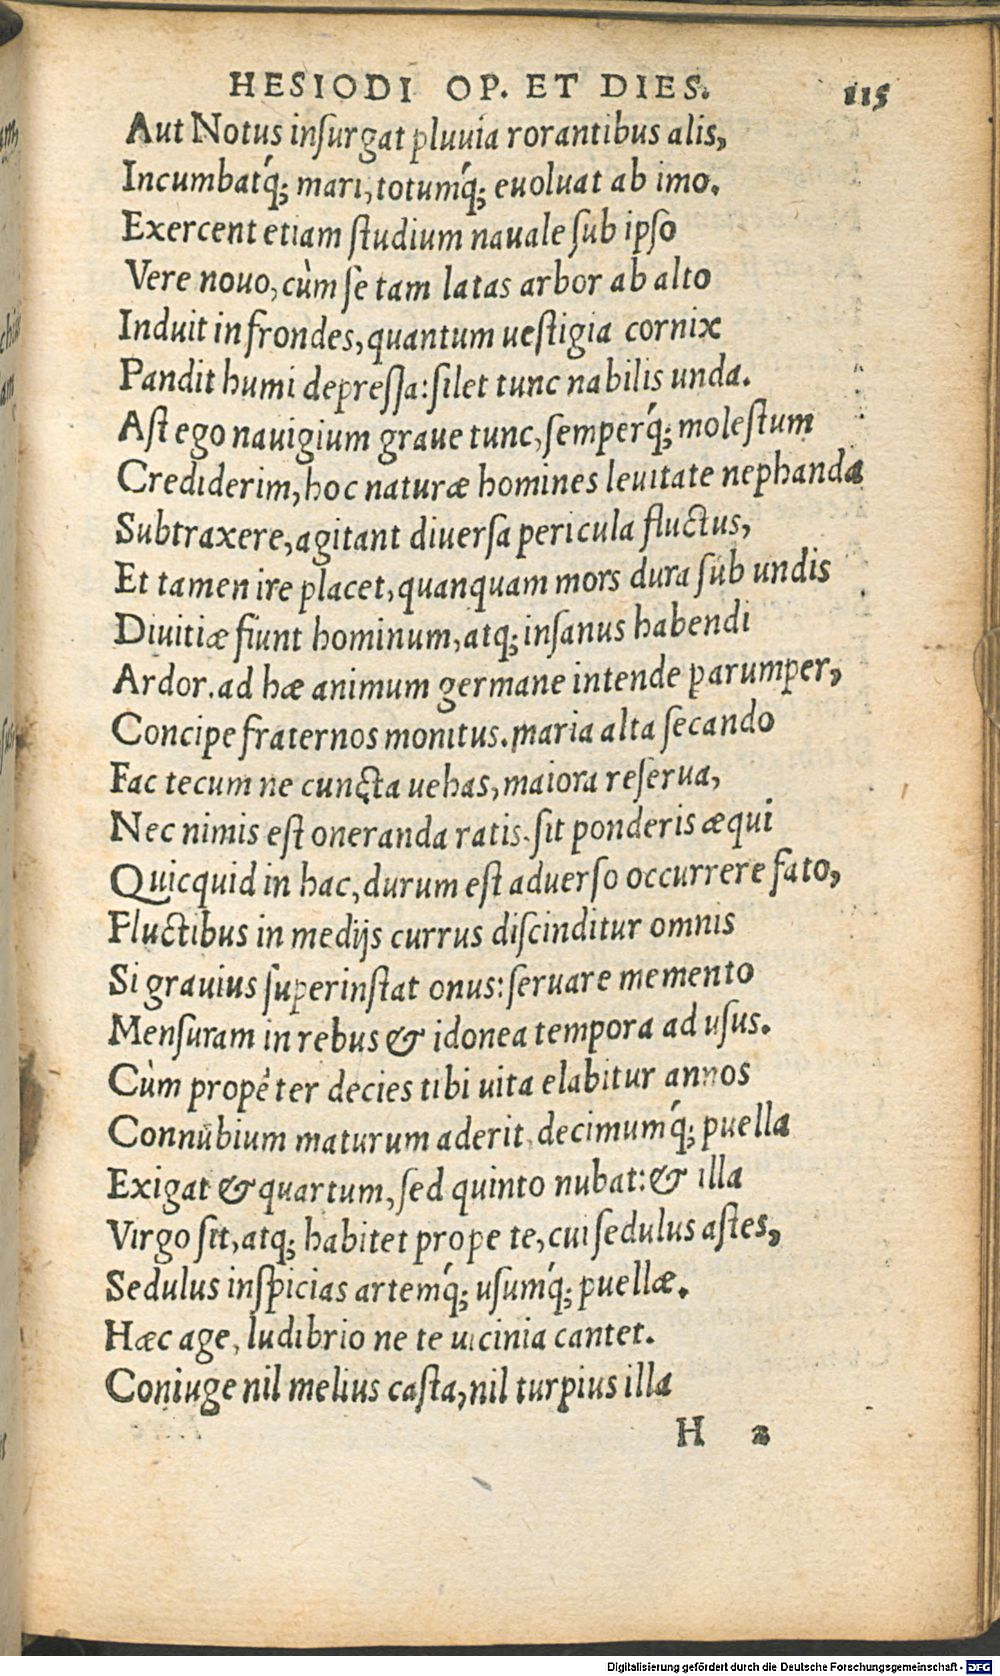 HESIODI OP. ET DIES. 115
Aut Notus inſurgat pluuia rorantibus alis,
Incumbatq́; mari, totumq́; euoluat ab imo.
Exercent etiam ſtudium nauale ſub ipſo
Vere nouo, cùm ſe tam latas arbor ab alto
Induit in frondes, quantum ueſtigia cornix
Pandit humi depreſſa: ſilet tunc nabilis unda.
Aſt ego nauigium graue tunc, ſemperq́; moleſtum
Crediderim, hoc naturæ homines leuitate nephanda
Subtraxere, agitant diuerſa pericula fluctus,
Et tamen ire placet, quanquam mors dura ſub undis
Diuitiæ fiunt hominum, atq; inſanus habendi
Ardor. ad hæ animum germane intende parumper,
Concipe fraternos monitus. maria alta ſecando
Fac tecum ne cuncta uehas, maiora reſerua,
Nec nimis eſt oneranda ratis. ſit ponderis æqui
Quicquid in hac, durum eſt aduerſo occurrere fato,
Fluctibus in medijs currus diſcinditur omnis
Si grauius ſuperinſtat onus: ſeruare memento
Menſuram in rebus & idonea tempora ad uſus.
Cùm propè ter decies tibi uita elabitur annos
Connubium maturum aderit, decimumq́; puella
Exigat & quartum, ſed quinto nubat: & illa
Virgo ſit, atq; habitet prope te, cui ſedulus aſtes,
Sedulus inſpicias artemq́; uſumq́; puellæ.
Hæc age, ludibrio ne te uicinia cantet.
Coniuge nil melius caſta, nil turpius illa
H 2
Digitalisierung gefördert durch die Deutsche Forschungsgemeinschaft - DFG